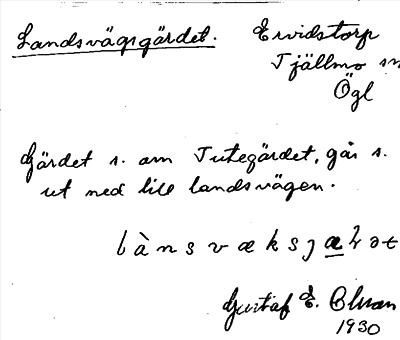 Landsvägsgärdet.
Ervidstorp
Tjällmo sn
Ögl
Gärdet s. om Jutegärdet, går s.
ut ned till landsvägen.
lànsvæksjæḷət
Gustaf E. Olman
1930